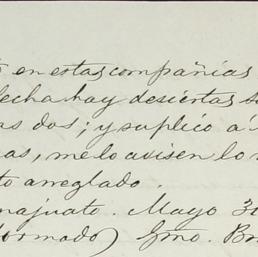 en estas compañias
fecha hay desiertas
as dos; y suplico a
as, me lo avisen lo
to arreglado.
najuato. Mayo 30
formado) Gmo.